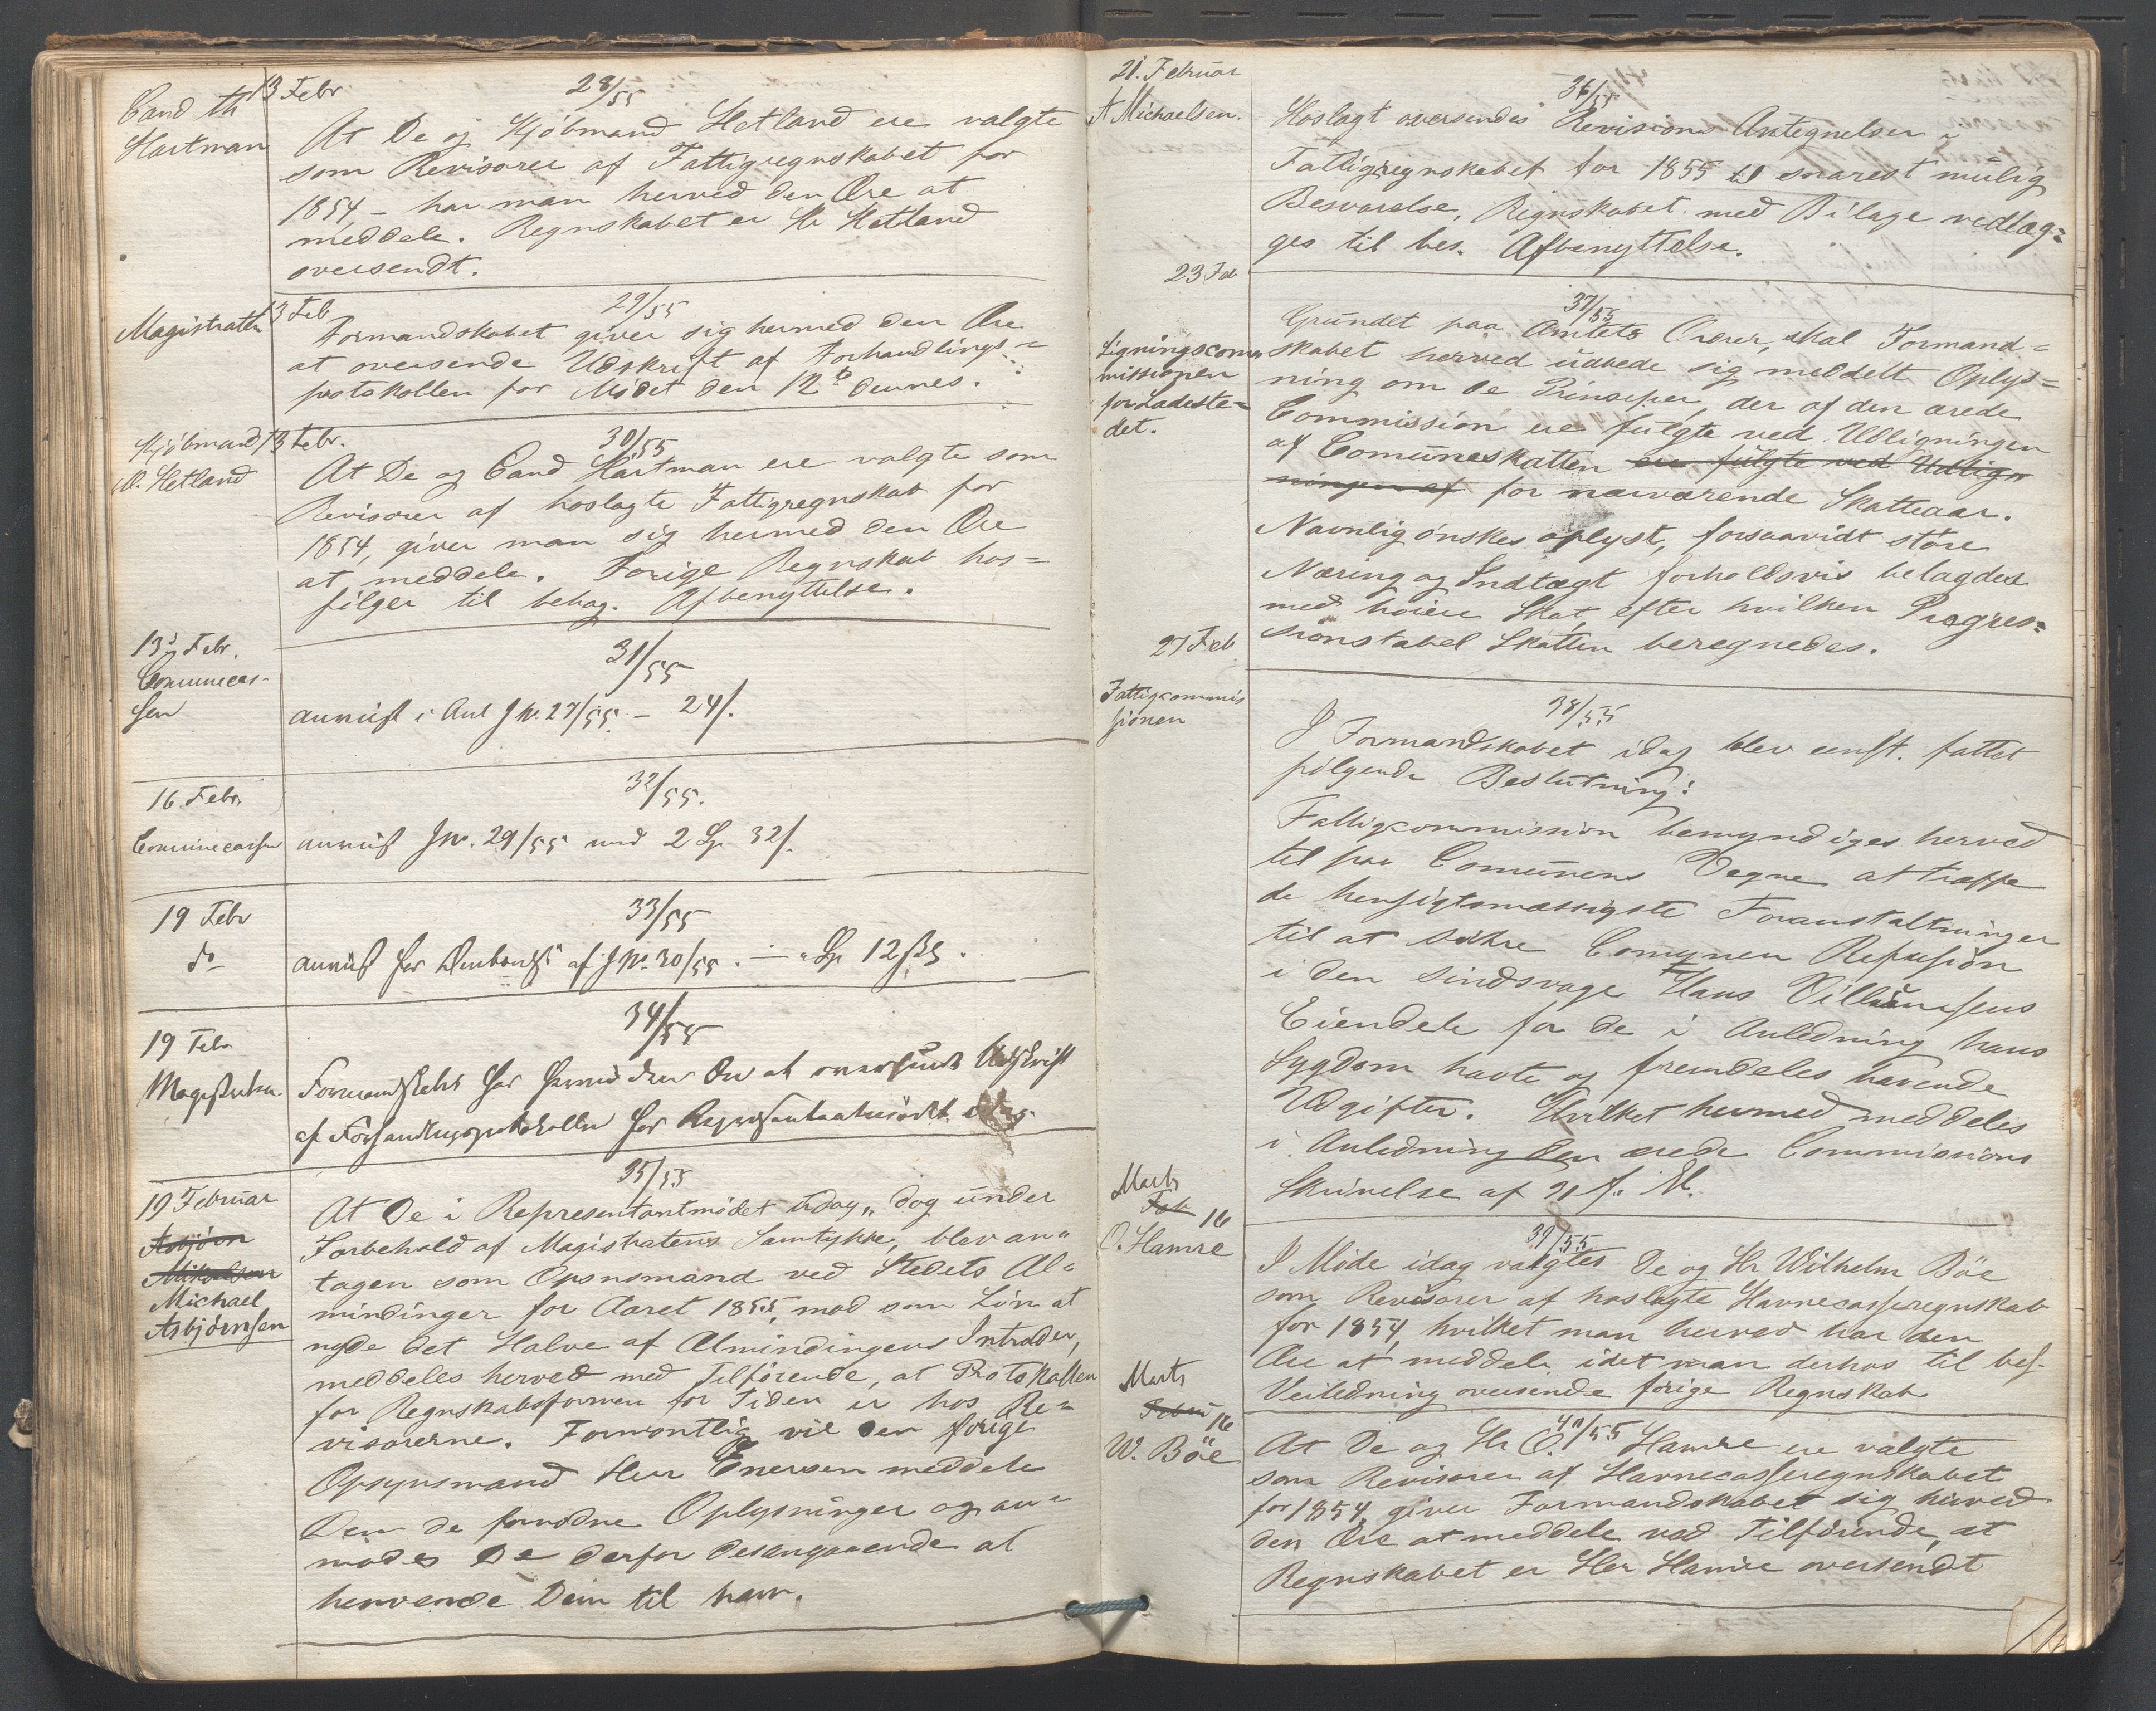 Cand th 13 Febr
Hartman
28/55
At De og Kjöbmand Hetland ere valgte
som Revisorer af Fattigregnskabet for
1854, – har man herved den Ære at
meddele. Regnskabet er Hr Hetland
oversendt.
Magistraten 13 Feb
29/55
Formandskabet giver sig hermed den Ære
at oversende Udskrift af Forhandlings=
protokollen for Mödet den 12te dennes.
Kjöbmand 13 Febr.
O. Hetland
30/55
At De og Cand Hartman ere valgte som
Revisorer af hoslagte Fattigregnskab for
1854, giver man sig hermed den Ære
at meddele. Forige Regnskab hos=
fölger til behag. Afbenyttelse.
13d Febr.
Comunecas-
sen
31/55
anviist i Anl J N. 27/55 – 24/.
16 Febr.
Comunecassen
32/55.
anviist J N. 29/55 med 2 Sp. 32/.
19 Febr
do
33/55
anviist for af J No. 30/55. – " Sp 12 sk.
19 Febr
Magistraten
34/55
Formandskabet har hermed den Ære at oversende Udskrift
af Forhandlingsprotokollen for Repræsentantmödet idag.
19 Februar
Asbjörn
Mikaelsen
Michael
Asbjörnsen
35/55
At De i Representantmödet idag, dog under
Forbehold af Magistratens Samtykke, blev an=
tagen som Opsnsmand ved Stedets Al=
mindinger for Aaret 1855, mod som Lön at
nyde det Halve af Almindingens Intrader,
meddeles herved med Tilförende, at Protokollen
for Regnskabsformen for Tiden er hos Re=
visorerne. Formontlig vil den forige
Opsynsmand Herr Enersen meddele
Dem de fornödne Oplysninger og an=
modes De derfor desangaaende at
henvende Dem til ham.
21. Februar
A Michaelsen.
36/55
Hoslagt oversendes Revisions Antegnelser i
Fattigregnskabet for 1855 til snarest mulig
Besvarelse, Regnskabet med Bilage vedlæg=
ges til bes. Afbenyttelse.
23 Feb
Ligningscom
missionen
for Ladeste=
det.
37/55
Grundet paa Amtets Ordrer, skal Formand=
skabet herved udbede sig meddelt Oplys=
ning om de Prinseper, der af den ærede
Commission ere fulgte ved Udligningen
af Comuneskatten ere fulgte ved Udlig=
ningen af for nærværende Skatteaar.
Navnlig önskes oplyst, forsaavidt störe
Næring og Indtægt forholdsvis belagdes
med höiere Skat, efter hvilken Progres=
sionstabel Skatten beregnedes.
27 Feb
Fattigcommis
sionen
38/55
I Formandskabet idag blev eenst. fattet
fölgende Beslutning:
Fattigcommission bemyndiges herved
til paa Comunens Vegne at træffe
de hensigtsmæssigste Foranstaltninger
til at sikkre Comunen Refusion
i den sindsvage Hans Villumsens
Eiendele for de i Anledning hans
Sygdom havte og fremdeles havende
Udgifter. Hvilket hermed meddeles
i Anledning den ærede Commissions
Skrivelse af 21 f. M.
Marts
Feb 16
O. Hamre
39/55
I Möde idag valgtes De og Hr Wilhelm Böe
som Revisorer af hoslagte Havnecasseregnskab
for 1854, hvilket man herved har den
Ære at meddele idet man derhos til bes.
Veiledning oversende forige Regnskab
Marts
Febru 16
W. Böe
40/55
At De og Hr O. Hamre ere valgte
som Revisorer af Havnecasseregnskabet
for 1854, giver Formandskabet sig herved
den Ære at meddele ved Tilförende, at
Regnskabet er Her Hamre oversendt